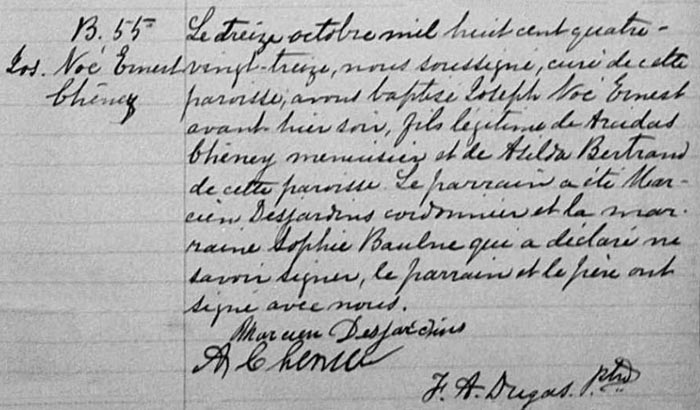 B. 55
Jos. Noé Ernest
Chéney
Le treize octobre mil huit cent quatre-
vingt-treize, nous soussigné, curé de cette
paroisse, avons baptisé Joseph Noé Ernest
avant-hier soir, fils légitime de Arcidas
Chéney menuisier et de Alilda Bertrand
de cette paroisse. Le parrain a été Mar-
cien Desjardins cordonnier et la mar-
raine Sophie Baulne qui a déclaré ne
savoir signer, le parrain et le père ont
signé avec nous.
Marcien Desjardins
A Chenie
F. A. Dugas. Ptre